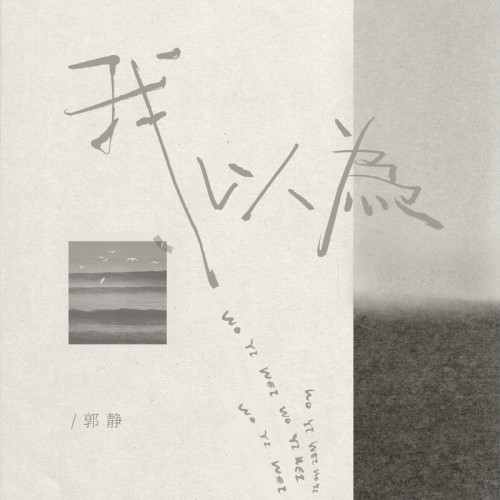 我以為
WO YI WEI WO YI WEI
WO YI WEI
WO YI WEI WO YI
/ 郭静